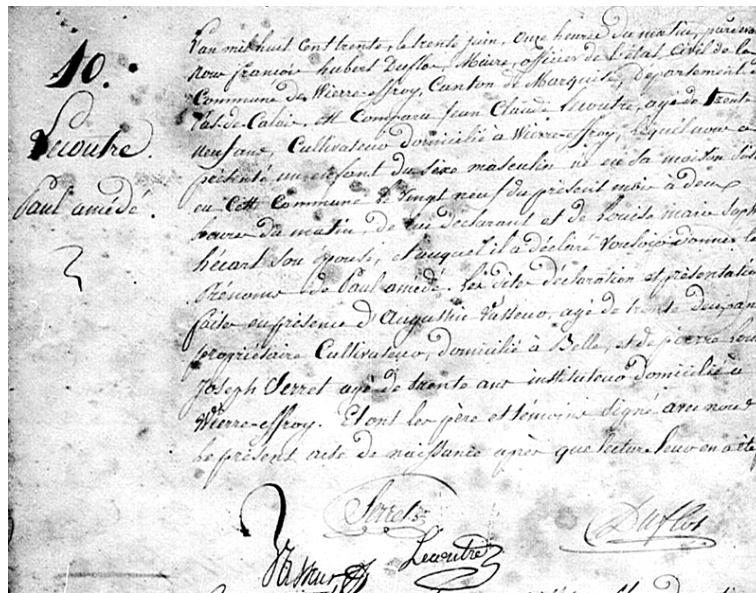 10.
Lecoutre.
Paul amédé.
L'an mil huit cent trente, le trente juin, onze heures du matin, pardevant
nous françois hubert Duflos, Maire, officier de l'état Civil de la
Commune de Wierre-effroy, Canton de Marquise, département du
Pas-de-Calais, est Comparu Jean Claude Lecoutre, agé de trente
neuf ans, Cultivateur domicilié à Wierre-effroy, lequel nous a
présenté un enfant du sexe masculin né en sa maison
en Cette Commune le vingt neuf du présent mois à deux
heures du matin, de lui déclarant et de Louise marie
hécart son épouse, et auquel il a déclaré vouloir donner les
prénoms de Paul amédé. Les dites déclaration et présentation
faites en présence d'Augustin Vasseur, agé de trente deux ans
propriétaire Cultivateur, domicilié à Belle, et de pierre
Joseph Serret agé de trente ans instituteur domicilié à
Wierre-effroy. Et ont les père et témoins signé avec nous
le présent acte de naissance après que lecture leur en a été
Serret
Duflos
Vasseur
Lecoutre